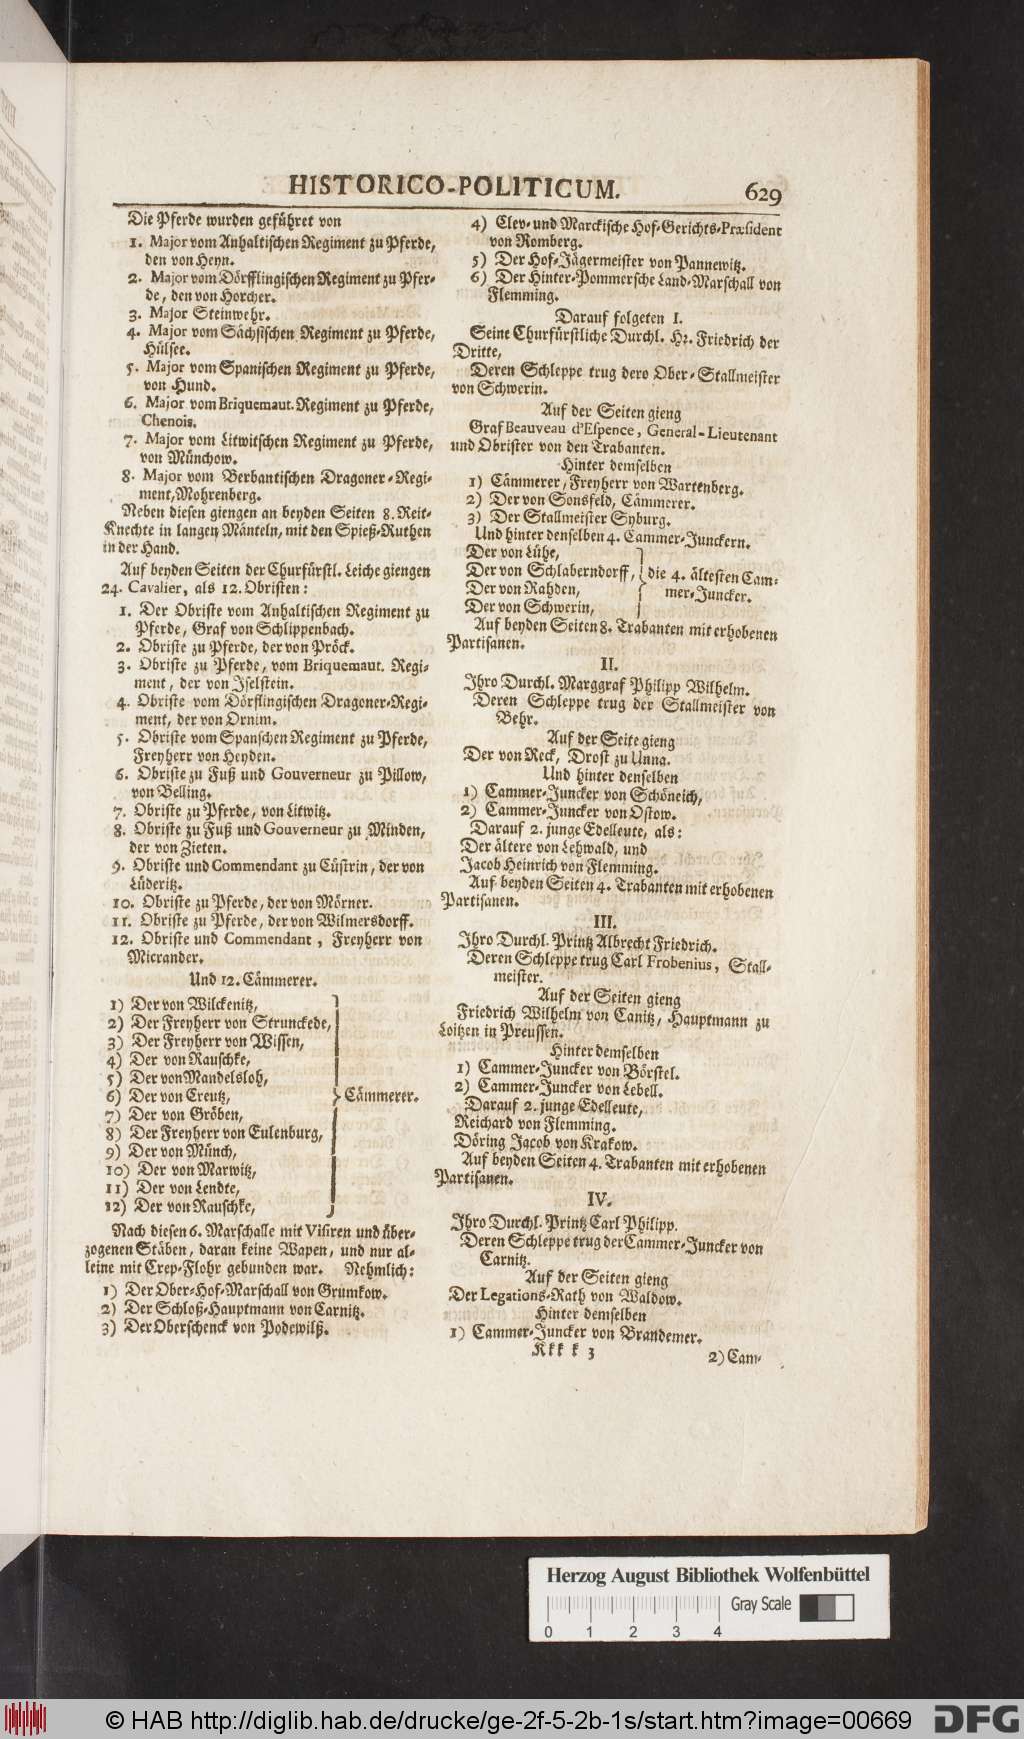 HISTORICO-POLITICUM. 629
Die Pferde wurden geführet von
1. Major vom Anhaltischen Regiment zu Pferde,
den von Heyn.
2. Major vom Dörfflingischen Regiment zu Pfer-
de, den von Horcher.
3. Major Steinwehr.
4. Major vom Sächsischen Regiment zu Pferde,
Hülset.
5. Major vom Spanischen Regiment zu Pferde,
von Hund.
6. Major vom Briquemaut. Regiment zu Pferde,
Chenois.
7. Major vom Litwitschen Regiment zu Pferde,
von Münchow.
8. Major vom Verbantischen Dragoner-Regi-
ment, Mohrenberg.
Neben diesen giengen an beyden Seiten 8. Reit-
Knechte in langen Mänteln, mit den Spieß-Ruthen
in der Hand.
Auf beyden Seiten der Churfürstl. Leiche giengen
24. Cavalier, als 12. Obristen:
1. Der Obriste vom Anhaltischen Regiment zu
Pferde, Graf von Schlippenbach.
2. Obriste zu Pferde, der von Pröck.
3. Obriste zu Pferde, vom Briquemaut. Regi-
ment, der von Iselstein.
4. Obriste vom Dörflingischen Dragoner-Regi-
ment, der von Ornim.
5. Obriste vom Spanschen Regiment zu Pferde,
Freyherr von Heyden.
6. Obriste zu Fuß und Gouverneur zu Pillow,
von Belling.
7. Obriste zu Pferde, von Litwitz.
8. Obriste zu Fuß und Gouverneur zu Minden,
der von Zieten.
9. Obriste und Commendant zu Cüstrin, der von
Lüderitz.
10. Obriste zu Pferde, der von Mörner.
11. Obriste zu Pferde, der von Wilmersdorff.
12. Obriste und Commendant, Freyherr von
Micrander.
Und 12. Cämmerer.
1) Der von Wilckenitz,
2) Der Freyherr von Strunckede,
3) Der Freyherr von Wissen,
4) Der von Rauschke,
5) Der von Mandelsloh,
6) Der von Creutz, } Cämmerer.
7) Der von Gröben,
8) Der Freyherr von Eulenburg,
9) Der von Münch,
10) Der von Marwitz,
11) Der von Lendte,
12) Der von Rauschke,
Nach diesen 6. Marschalle mit Visiren und über-
zogenen Stäben, daran keine Wapen, und nur al-
leine mit Crep-Flohr gebunden war. Nehmlich:
1) Der Ober-Hof-Marschall von Grumkow.
2) Der Schloß-Hauptmann von Carnitz.
3) Der Oberschenck von Podewilß.
4) Clev- und Marckische Hof-Gerichts-Præsident
von Romberg.
5) Der Hof-Jägermeister von Pannewitz.
6) Der Hinter-Pommersche Land-Marschall von
Flemming.
Darauf folgeten I.
Seine Churfürstliche Durchl. Hr. Friedrich der
Dritte,
Deren Schleppe trug dero Ober-Stallmeister
von Schwerin.
Auf der Seiten gieng
Graf Beauveau d'Espence, General-Lieutenant
und Obrister von den Trabanten.
Hinter demselben
1) Cämmerer, Freyherr von Wartenberg.
2) Der von Sonsfeld, Cämmerer.
3) Der Stallmeister Syburg.
Und hinter denselben 4. Cammer-Junckern.
Der von Lühe,
Der von Schlaberndorff, } die 4. ältesten Cam-
Der von Rahden, mer-Juncker.
Der von Schwerin,
Auf beyden Seiten 8. Trabanten mit erhobenen
Partisanen.
II.
Ihro Durchl. Marggraf Philipp Wilhelm.
Deren Schleppe trug der Stallmeister von
Behr.
Auf der Seite gieng
Der von Reck, Drost zu Unna.
Und hinter denselben
1) Cammer-Juncker von Schöneich,
2) Cammer-Juncker von Ostow.
Darauf 2. junge Edelleute, als:
Der ältere von Lehwald, und
Jacob Heinrich von Flemming.
Auf beyden Seiten 4. Trabanten mit erhobenen
Partisanen.
III.
Ihro Durchl. Printz Albrecht Friedrich.
Deren Schleppe trug Carl Frobenius, Stall-
meister.
Auf der Seiten gieng
Friedrich Wilhelm von Canitz, Hauptmann zu
Loitzen in Preussen.
Hinter demselben
1) Cammer-Juncker von Börstel.
2) Cammer-Juncker von Lebell.
Darauf 2. junge Edelleute,
Reichard von Flemming.
Döring Jacob von Krakow.
Auf beyden Seiten 4. Trabanten mit erhobenen
Partisanen.
IV.
Ihro Durchl. Printz Carl Philipp.
Deren Schleppe trug der Cammer-Juncker von
Carnitz.
Auf der Seiten gieng
Der Legations-Rath von Waldow.
Hinter demselben
1) Cammer-Juncker von Brandemer.
Kkk k 3 2) Cam-
Herzog August Bibliothek Wolfenbüttel
Gray Scale
0 1 2 3 4
© HAB http://diglib.hab.de/drucke/ge-2f-5-2b-1s/start.htm?image=00669 DFG